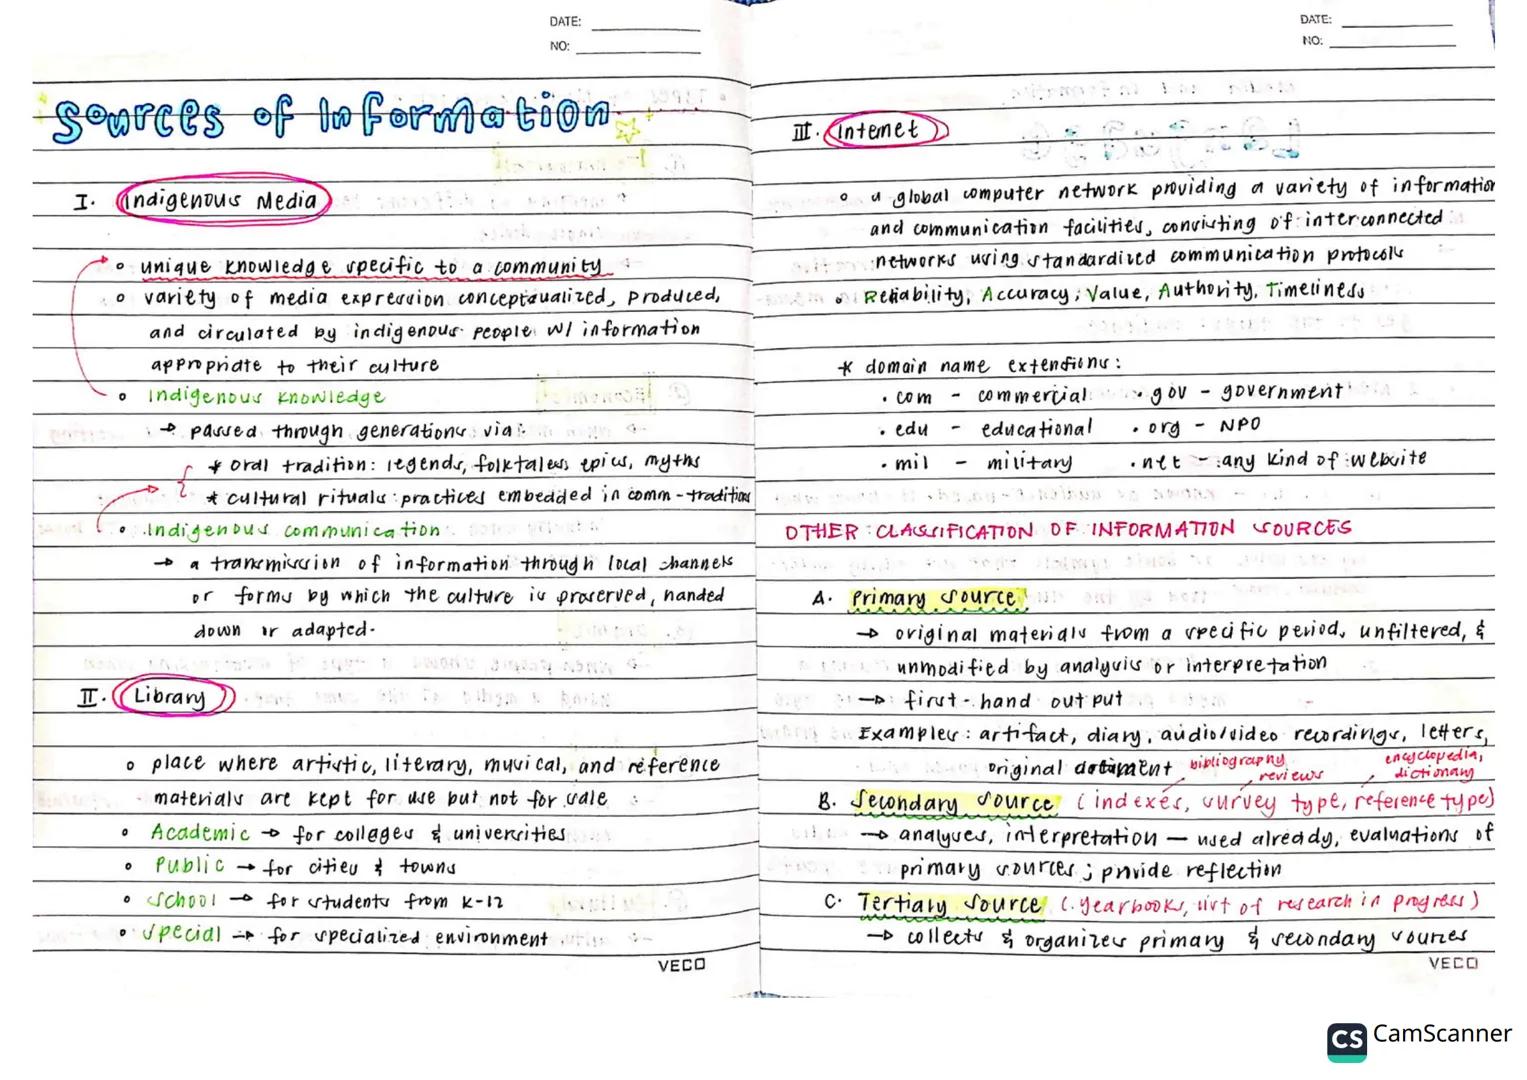 DATE:
NO:
Sources of Information
I. Indigenous Media
unique knowledge specific to a community
variety of media expression conceptualized, produced,
and circulated by indigenous people w/ information
appropriate to their culture
Indigenous Knowledge
→ passed through generations via:
* oral tradition: legends, folktales, epics, myths
* cultural rituals: practices embedded in comm-traditions
Indigenous communication
→ a transmission of information through local channels
or forms by which the culture is preserved, handed
down or adapted.
II. Library
place where artistic, literary, musical, and reference
materials are kept for use but not for sale
Academic → for colleges & universities
Public → for cities & towns
School → for students from K-12
Special → for specialized environment
VECO
DATE:
NO:
III. Internet
a global computer network providing a variety of information
and communication facilities, consisting of interconnected
networks using standardized communication protocols
Reliability, Accuracy, Value, Authority, Timeliness
* domain name extensions:
.com - commercial .gov - government
.edu - educational .org - NPO
.mil - military .net - any kind of website
OTHER CLASSIFICATION OF INFORMATION SOURCES
A. Primary source
→ original materials from a specific period, unfiltered, &
unmodified by analysis or interpretation
→ first-hand output
Examples: artifact, diary, audio/video recordings, letters,
original document
bibliography reviews encyclopedia, dictionary
B. Secondary source (indexes, survey type, reference type)
→ analyses, interpretation — used already, evaluations of
primary sources; provide reflection
C. Tertiary source (yearbooks, list of research in progress)
→ collects & organizes primary & secondary sources
VECO
CS CamScanner